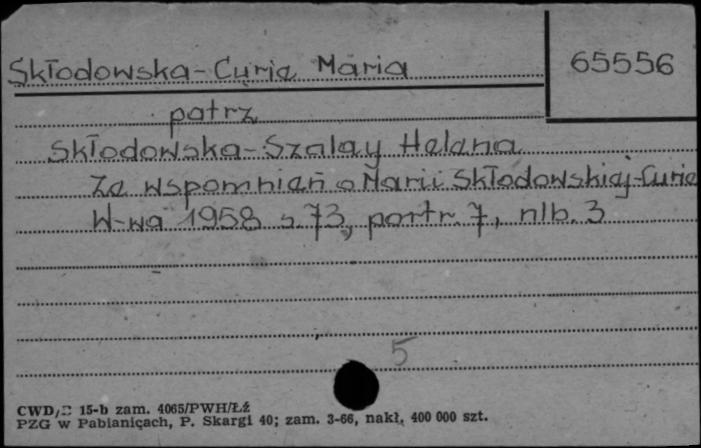 Skłodowska-Curie Maria
65556
patrz
Skłodowska-Szalay Helena
Ze wspomnień o Marii Skłodowskiej-Curie
W-wa 1958 s. 73, portr. 7, nlb. 3
5
CWD, 15-b zam. 4065/PWH/Łź
PZG w Pabianicach, P. Skargi 40; zam. 3-66, nakł. 400 000 szt.